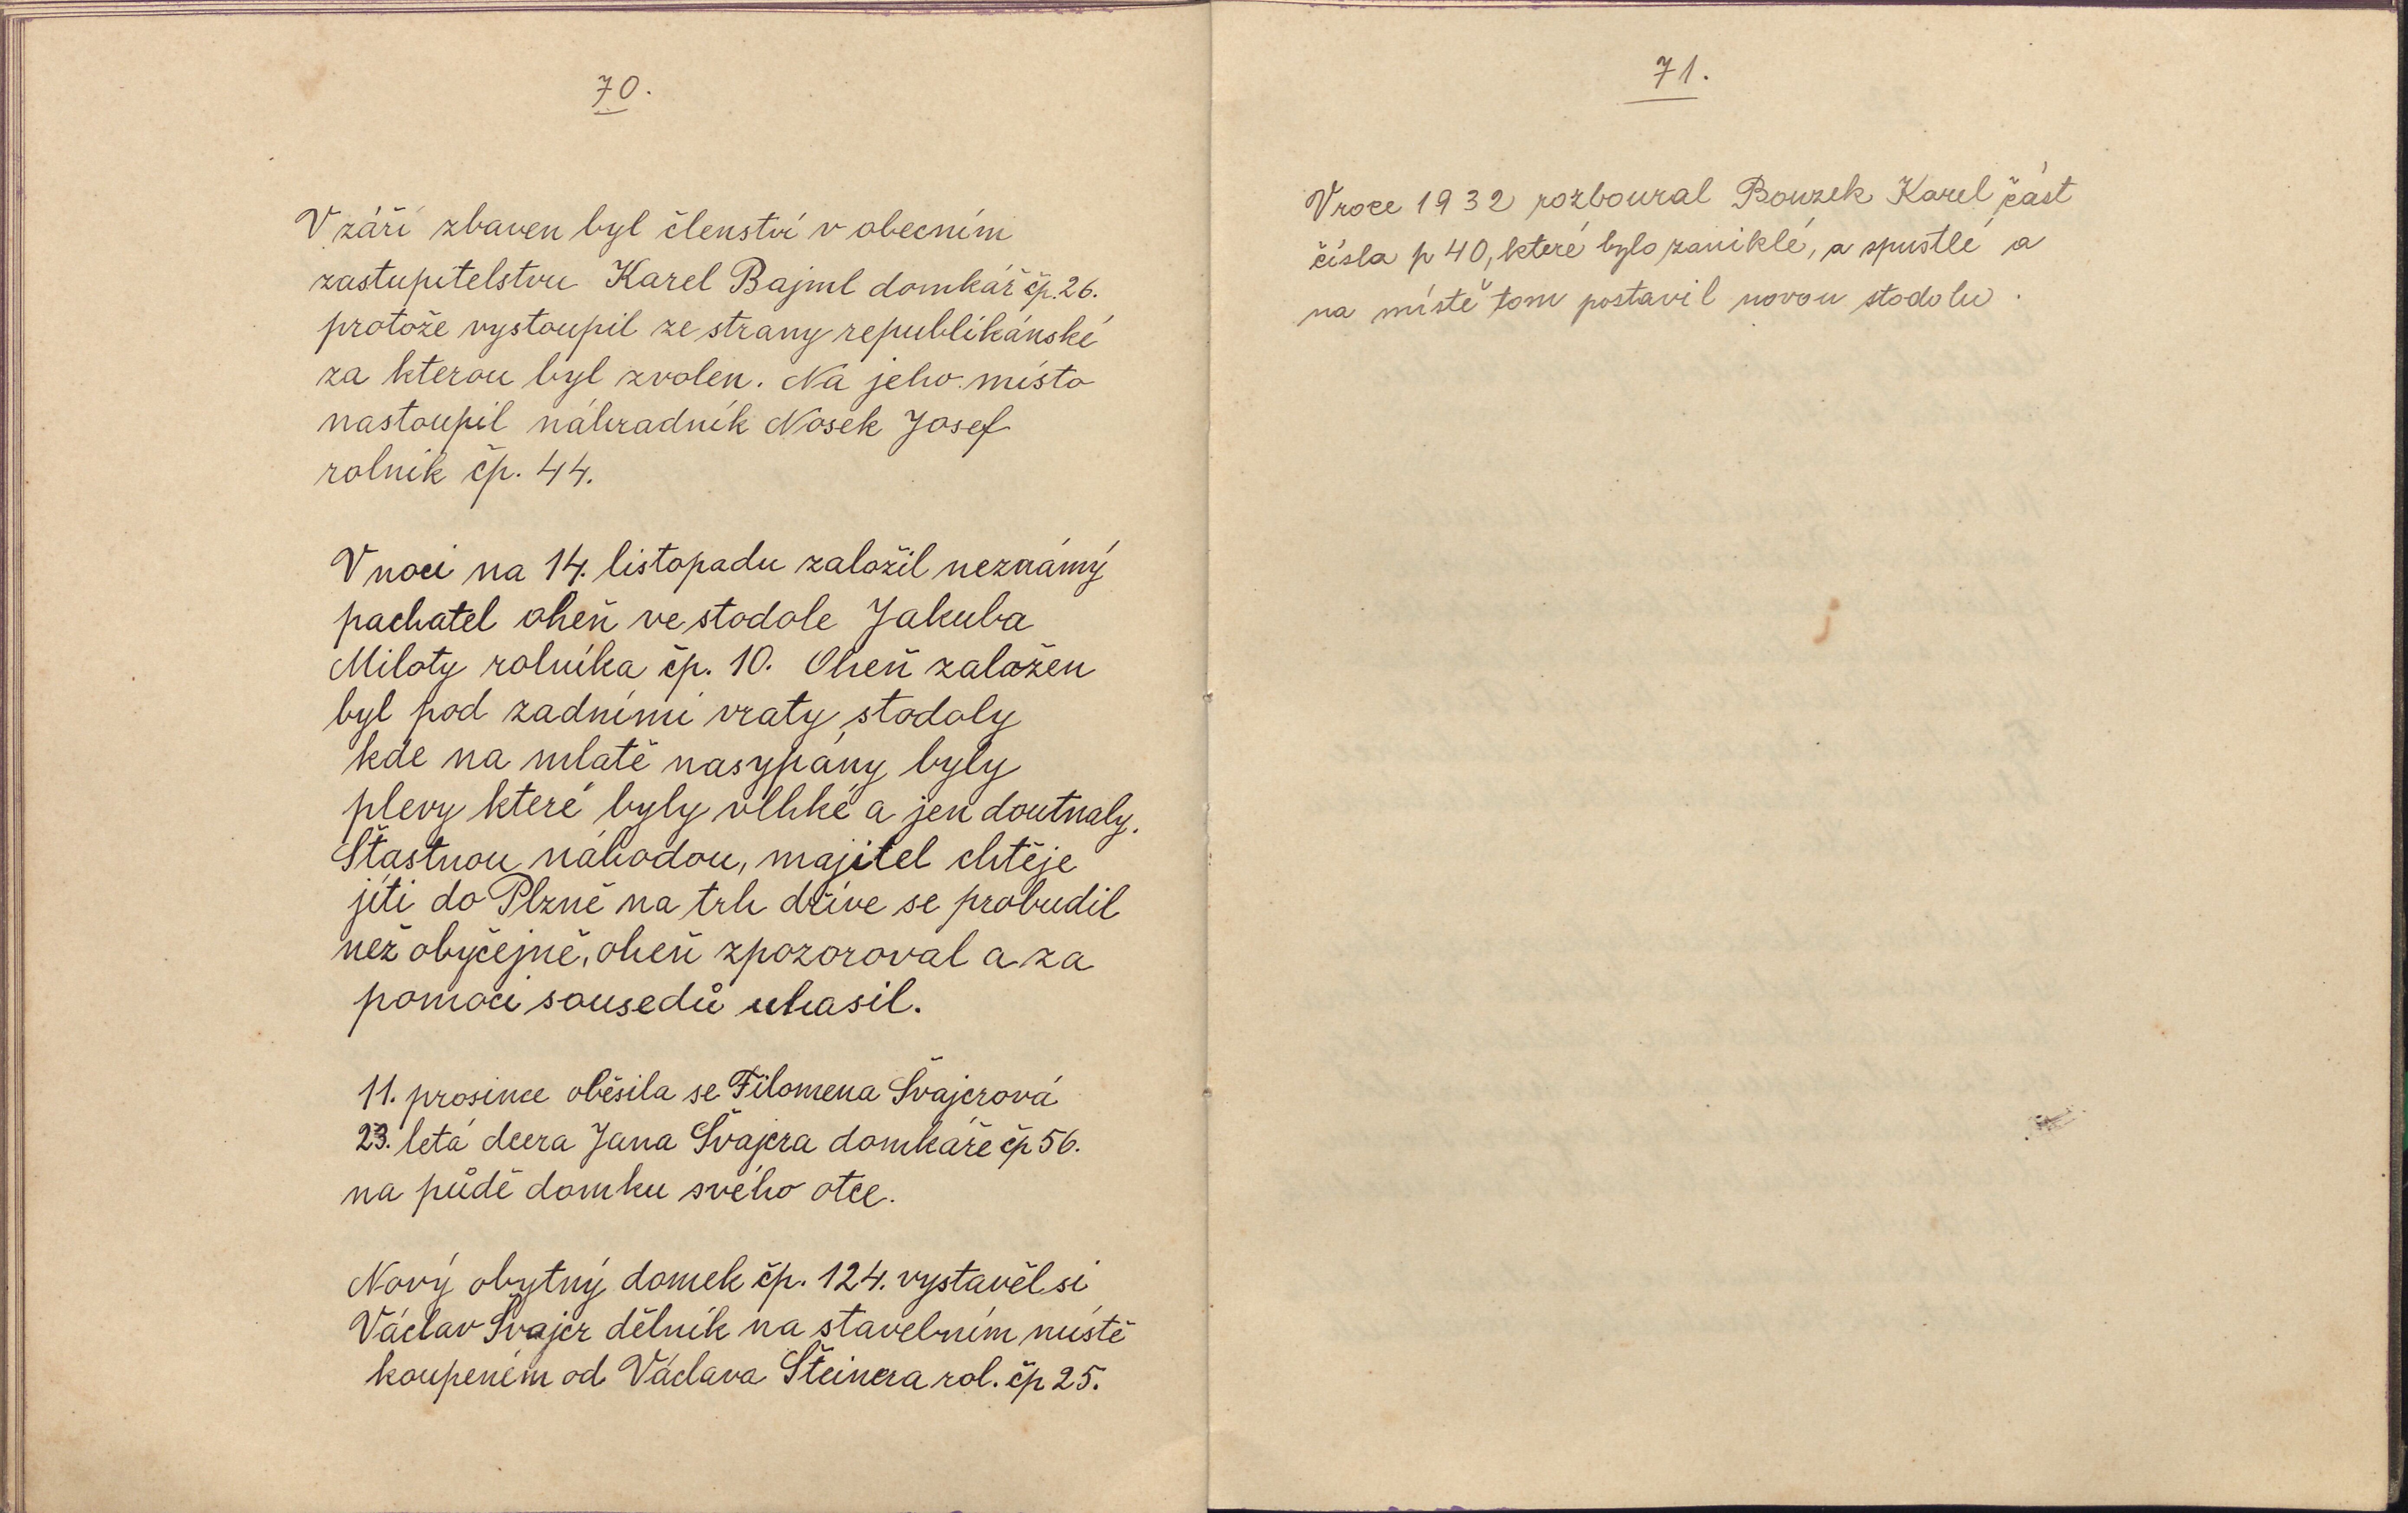 70.
V září zbaven byl členství v obecním
zastupitelstvu Karel Bajml domkář čp. 26.
protože vystoupil ze strany republikánské
za kterou byl zvolen. Na jeho místo
nastoupil náhradník Nosek Josef
rolník čp. 44.
V noci na 14. listopadu založil neznámý
pachatel oheň ve stodole Jakuba
Miloty rolníka čp. 10. Oheň založen
byl pod zadními vraty stodoly
kde na mlatě nasypány byly
plevy které byly vlhké a jen doutnaly.
Šťastnou náhodou, majitel chtěje
jíti do Plzně na trh dříve se probudil
než obyčejně, oheň zpozoroval a za
pomoci sousedů uhasil.
11. prosince oběsila se Filomena Švajcrová
23. letá dcera Jana Švajcra domkáře čp 56.
na půdě domku svého otce.
Nový obytný domek čp. 124. vystavěl si
Václav Švajcr dělník na stavebním místě
koupeném od Václava Šteinera rol. čp 25.
71.
V roce 1932 rozboural Bouzek Karel část
čísla p 40, které bylo zaniklé, a spustlé a
na místě tom postavil novou stodolu.